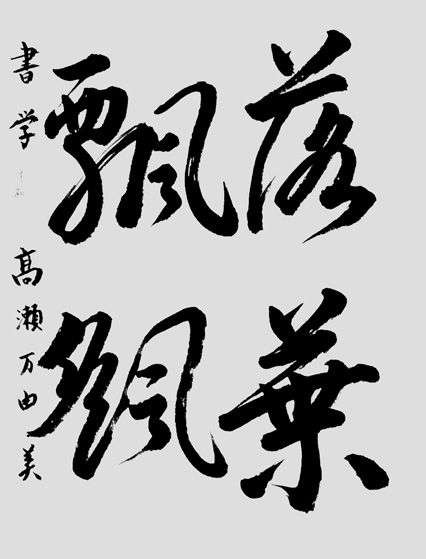 落葉
飄颻
書学 高瀬万由美